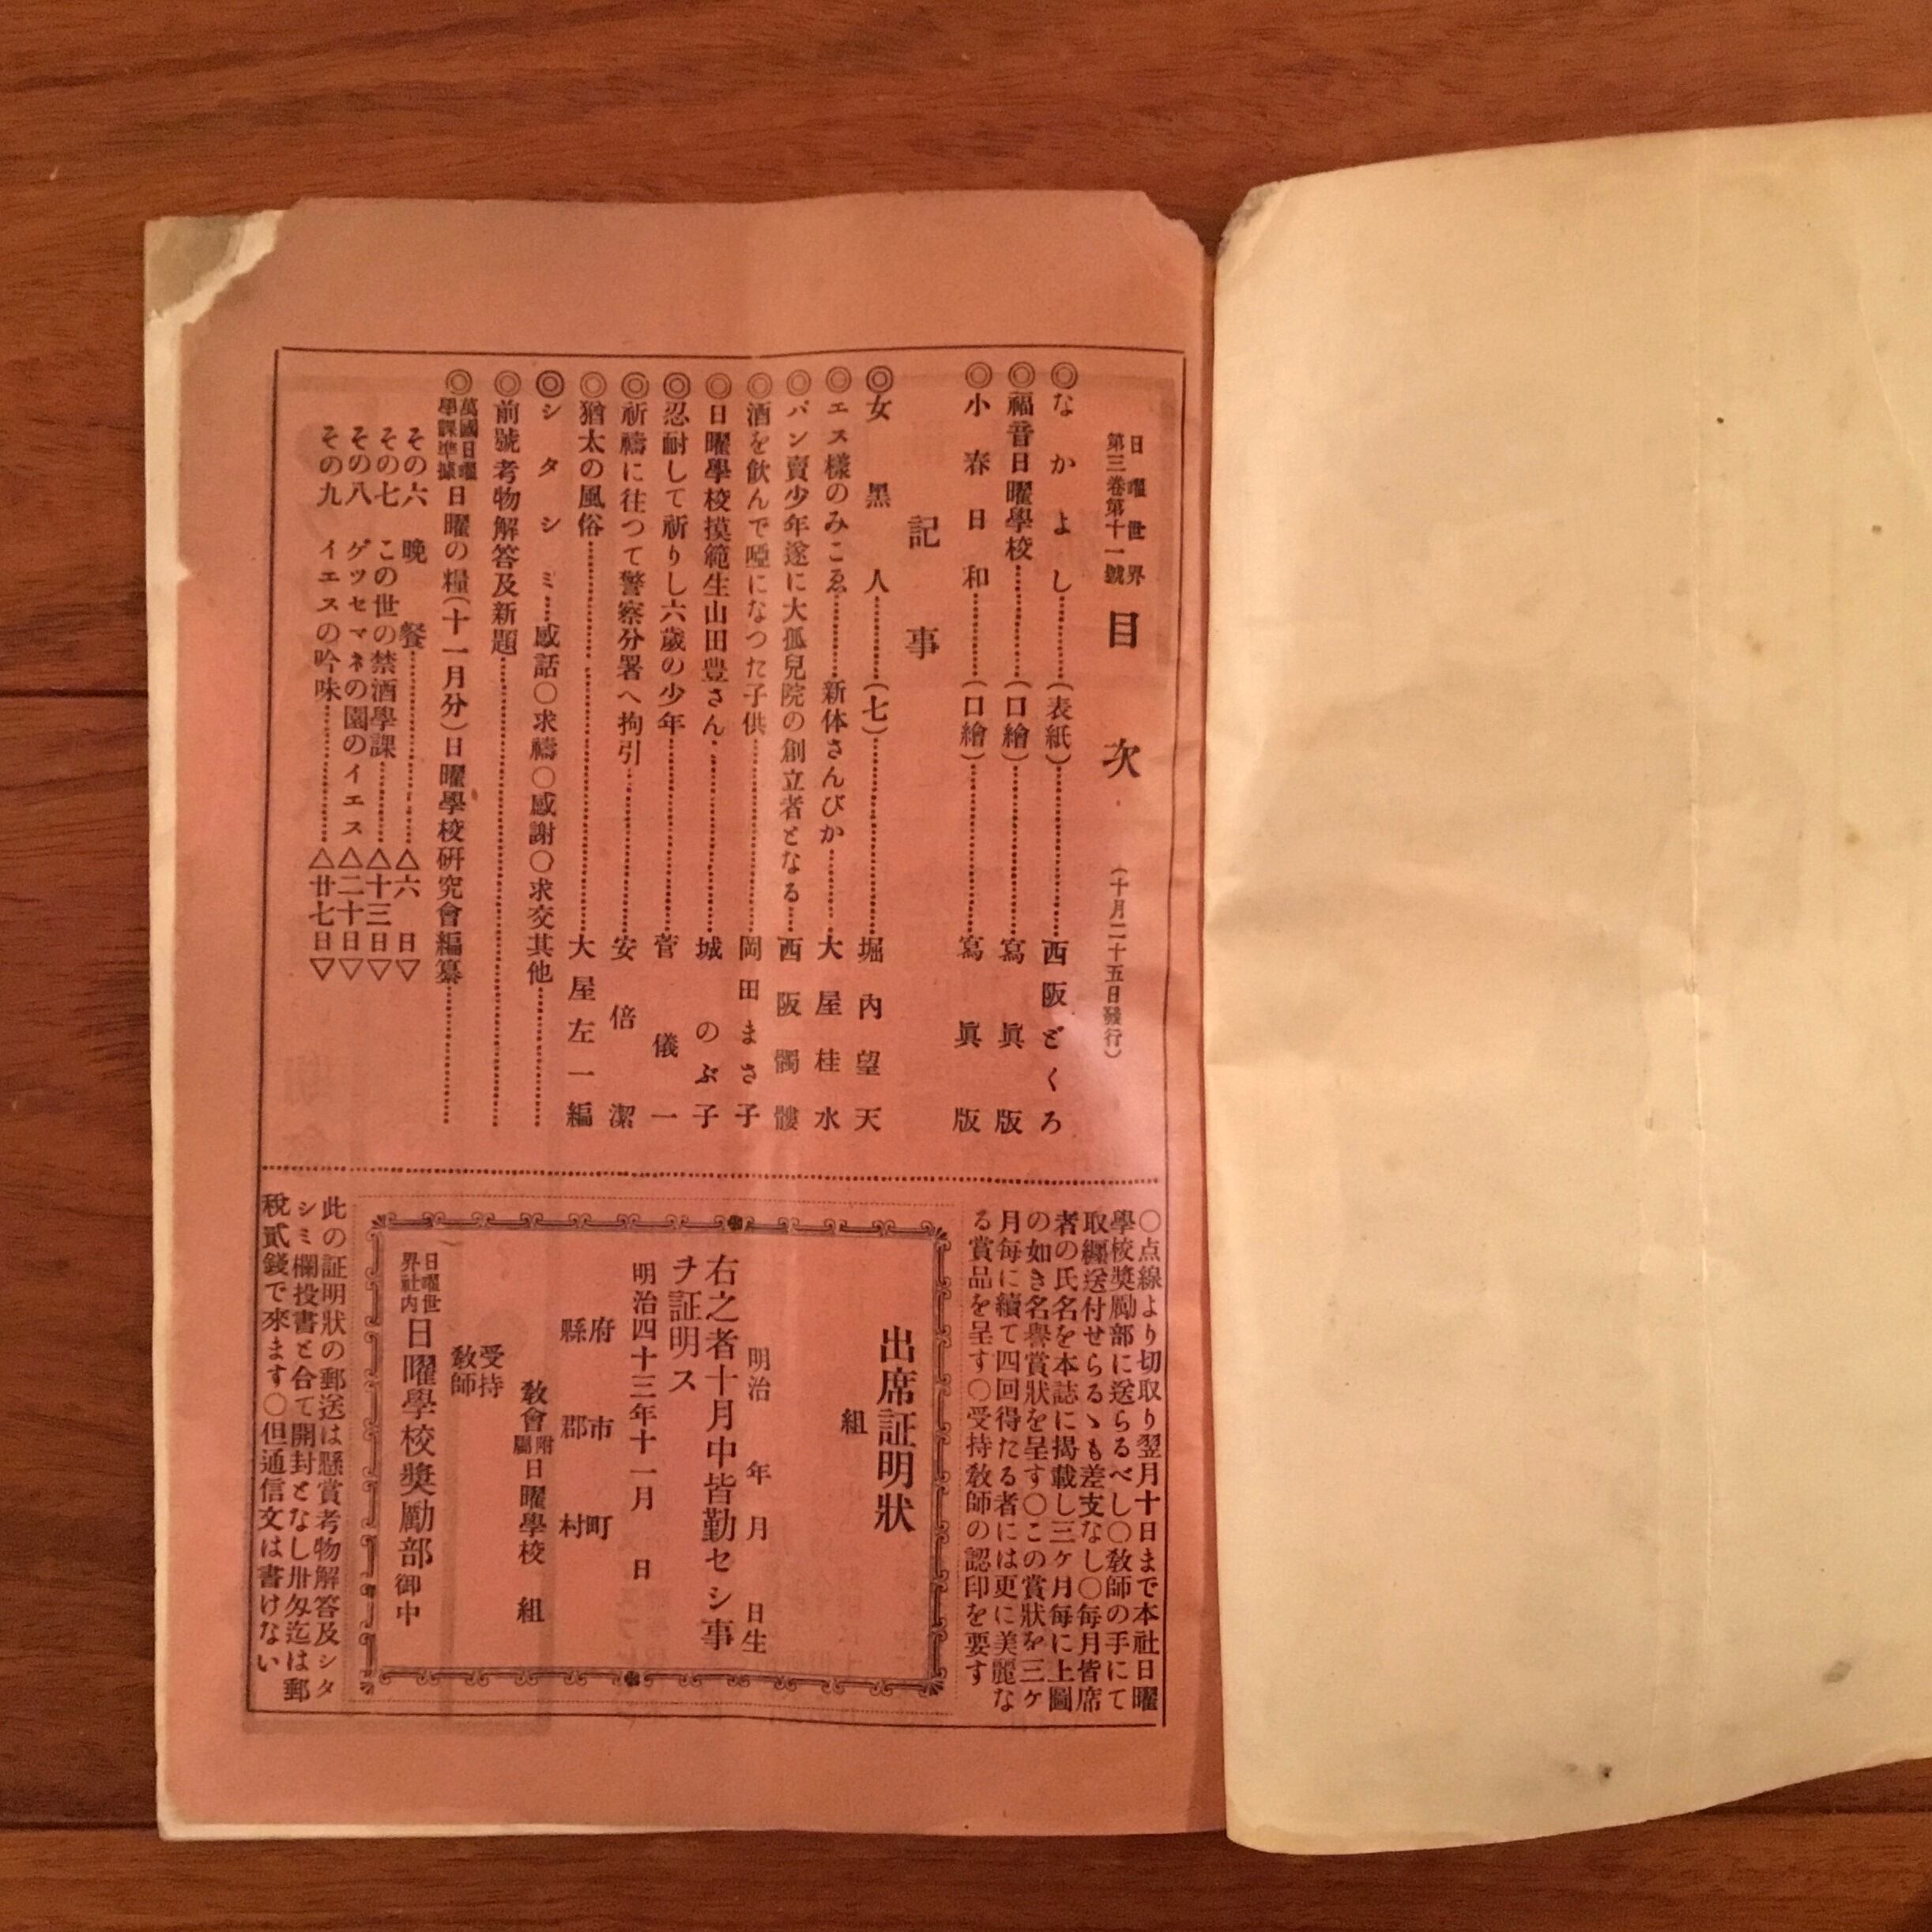 日曜世界
第三卷第十一號
目次
(十月二十五日發行)
◎なかよし……(表紙)……西阪どくろ
◎福音日曜學校……(口繪)……寫眞版
◎小春日和……(口繪)……寫眞版
記事
◎女黑人……(七)……堀內望天
◎エス樣のみこゑ……新体さんびか……大屋桂水
◎パン賣少年遂に大孤兒院の創立者となる……西阪髑髏
◎酒を飮んで啞になつた子供……岡田まさ子
◎日曜學校摸範生山田豊さん……城のぶ子
◎忍耐して祈りし六歲の少年……菅儀一
◎祈禱に往つて警察分署へ拘引……安倍潔
◎猶太の風俗……大屋左一編
◎シタシミ……感話〇求禱〇感謝〇求交其他……
◎前號考物解答及新題……
◎萬國日曜學課準據日曜の糧(十一月分)日曜學校硏究會編纂……
その六 晩餐……△六日▽
その七 この世の禁酒學課……△十三日▽
その八 ゲッセマネの園のイエス△二十日▽
その九 イエスの吟味……△廿七日▽
〇点線より切取り翌月十日まで本社日曜
學校奬勵部に送らるべし〇敎師の手にて
取纒送付せらるゝも差支なし〇每月皆席
者の氏名を本誌に揭載し三ケ月每に上圖
の如き名譽賞狀を呈す〇この賞狀を三ケ
月每に續て四回得たる者には更に美麗な
る賞品を呈す〇受持敎師の認印を要す
出席証明狀
組
明治 年 月 日生
右之者十月中皆勤セシ事
ヲ証明ス
明治四十三年十一月 日
府 市 町
縣 郡 村
敎會附屬日曜學校 組
受持
敎師
日曜世界社內日曜學校奬勵部御中
此の証明狀の郵送は懸賞考物解答及シタ
シミ欄投書と合て開封となし卅匁迄は郵
稅貳錢で來ます〇但通信文は書けない